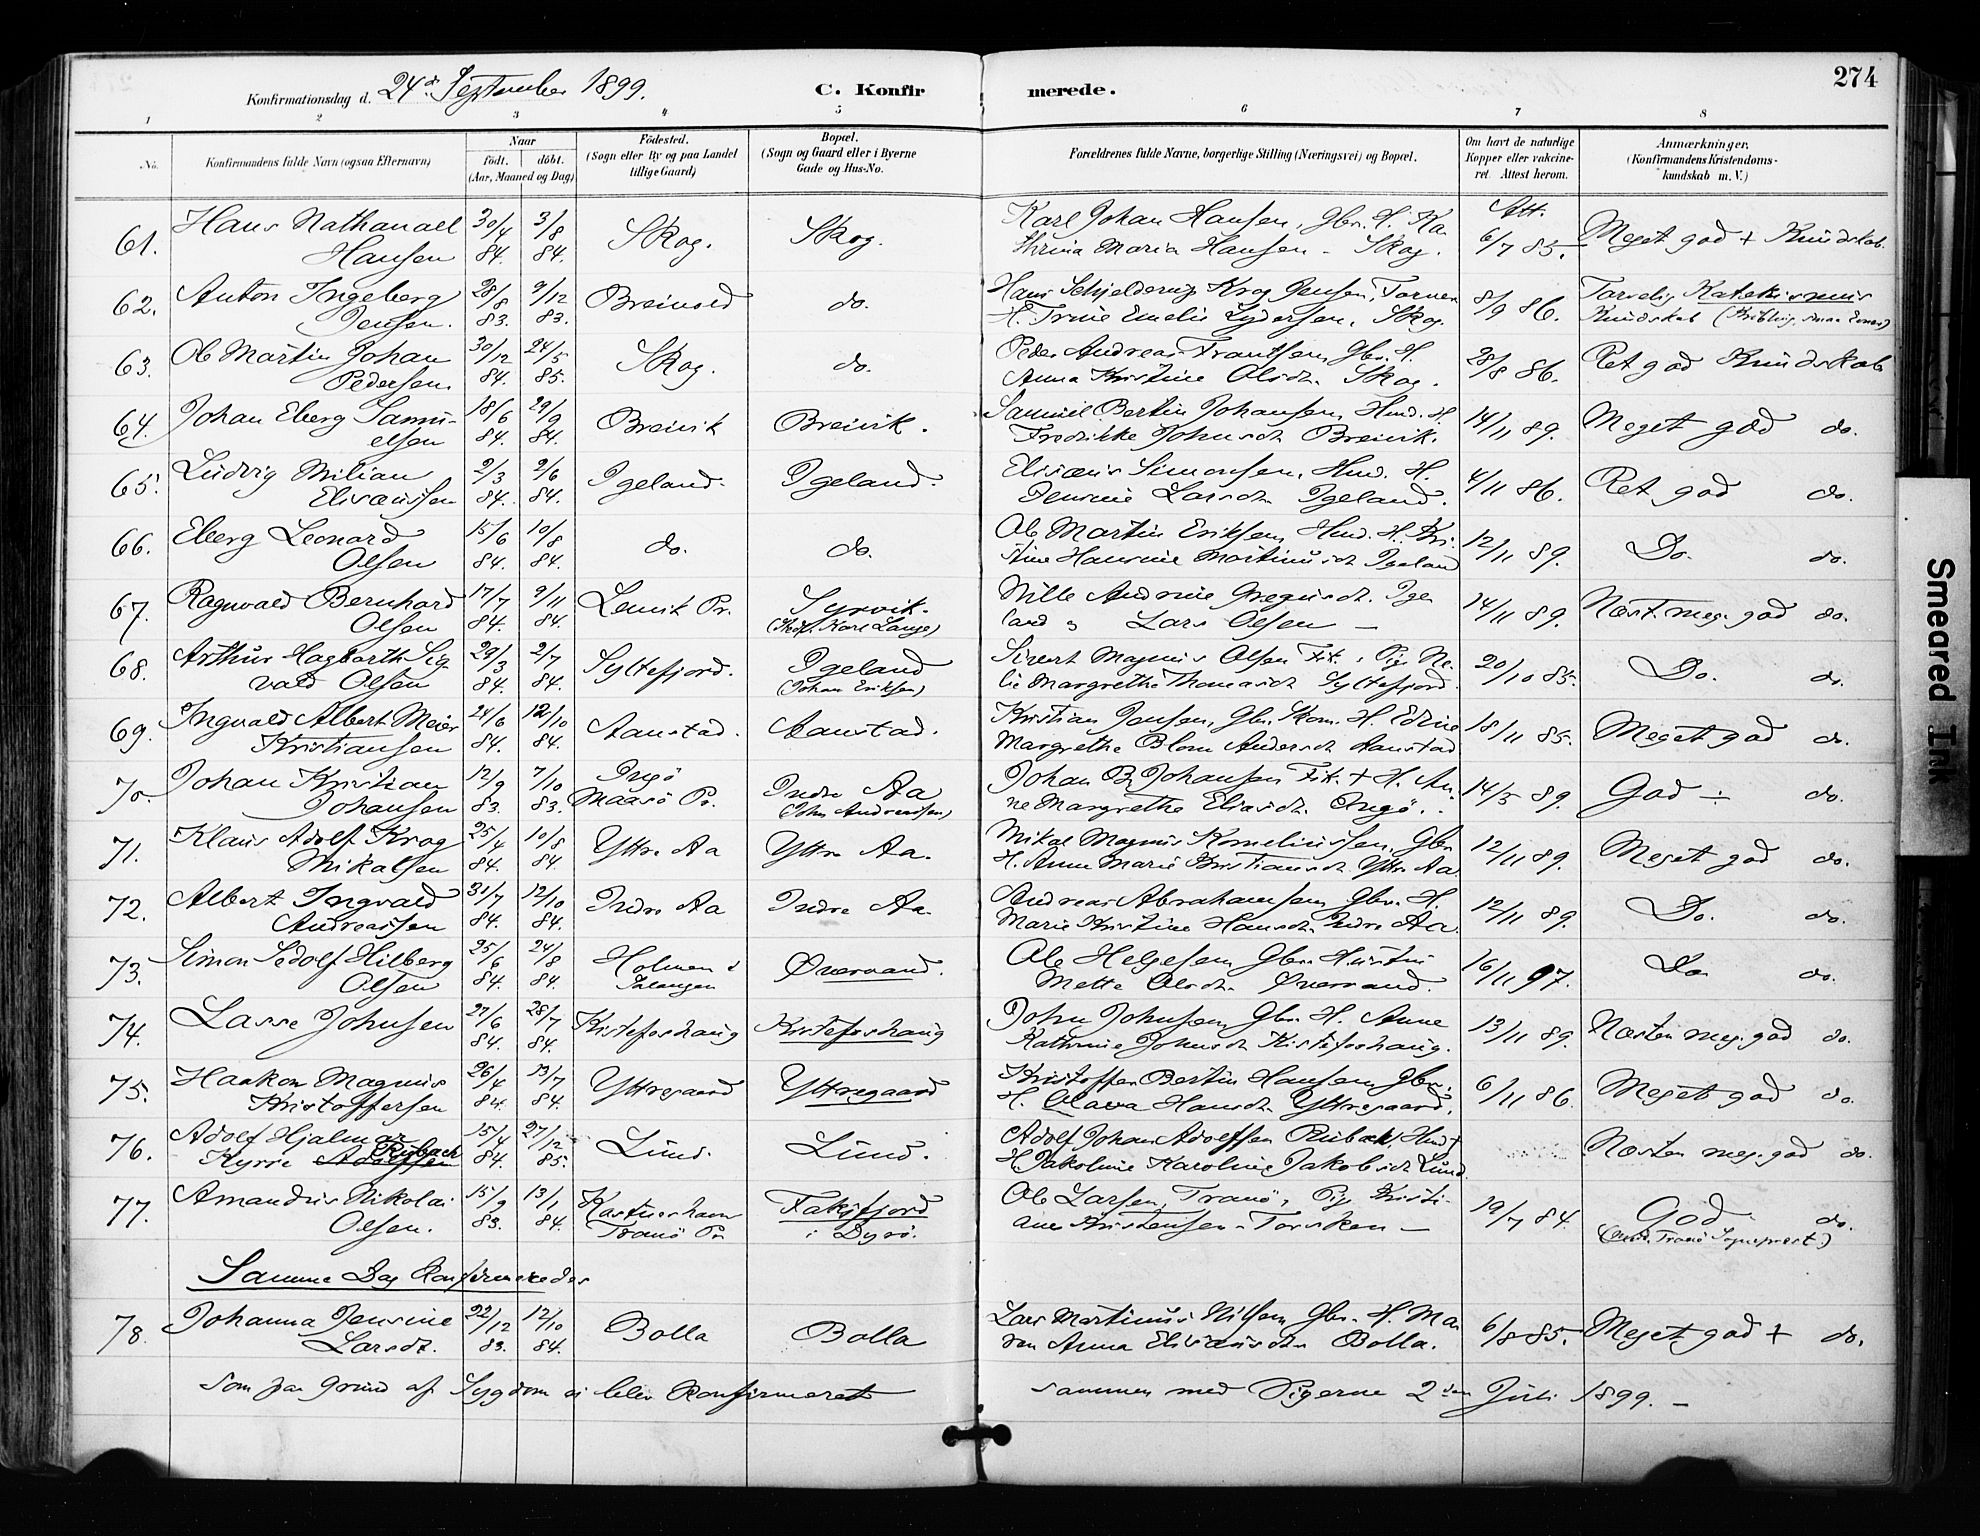 274
Konfirmationsdag d. 24de September 1899. C. Konfirmerede.
1 2 3 4 5 6 7 8
No. Konfirmandens fulde Navn (ogsaa Efternavn) Naar født. døbt. (Aar, Maaned og Dag) Födested. (Sogn eller By og paa Landet tillige Gaard) Bopæl. (Sogn og Gaard eller i Byerne Gade og Hus-No. Forældrenes fulde Navne, borgerlige Stilling (Næringsvei) og Bopæl. Om havt de naturlige Kopper eller vakcineret. Attest herom. Anmærkninger. (Konfirmandens Kristendomskundskab m. V.)
61. Hans Nathanael 30/4 3/8 Skog. Skog. Karl Johan Hansen, Gbr. H. Ka Att. 6/7 85. Meget god + Kundskab.
Hansen 84. 84. thrina Maria Hansen - Skog.
62. Anton Ingeberg 28/8 9/12 Breivold do. Hans Schjelderup Krog Jensen, Forpen 8/9 86. Tarvelig Katekismus
Jensen. 83. 83. H. Trine Emelie Lydersen, Skog. Kundskab
63. Ole Martin Johan 30/12 24/5 Skog. do. Peder Andreas Frantsen, Gbr. H. 28/8 86. Ret god Kundskab
Pedersen. 84. 85. Anna Kristine Olsdt. Skog.
64. Johan Eberg Samu- 18/6 29/9 Breivik Breivik. Samuel Bertin Johansen, Hmd. H. 14/11 89. Meget god do.
elsen 84. 84. Fredrikke Johnsdt. Breivik.
65. Ludvig Milian 2/3 2/6 Igeland. Igeland. Elisæus Simonsen, Hmd. H. 4/11 86. Ret god do.
Elisæussen 84. 84. Jensine Larsdt. Igeland.
66. Eberg Leonard 15/6 10/8 do. do. Ole Martin Eriksen, Hmd. H. Kri- 12/11 89. Do. do.
Olsen 84. 84. stine Hansine Martinusdt. Igeland
67. Ragnvald Bernhard 17/7 9/11 Lenvik Pr. Syrvik. Nille Andrine Gregusdt. Ige 14/11 89. Næst. meg. god do.
Olsen 84. 84. (Skof. Karl Lange) land & Lars Olsen -
68. Arthur Hagbarth Sig 29/3 2/7 Syltefjord. Igeland Sivert Magnus Olsen Fit. & Pig. Ne- 20/10 85. Do. do.
vald Olsen 84. 84. (Johan Eriksen) lie Margrethe Thomasdt. Syltefjord.
69. Ingvald Albert Meier 24/6 12/10 Aanstad. Aanstad. Kristian Jensen, Gbr. Skom. H. Edine 18/11 85. Meget god do.
Kristiansen 84. 84. Margrethe Blom Andersdt. Aanstad
70. Johan Kristian 12/9 7/10 Ingö Indre Aa Johan B. Johansen Fit. + H. An- 14/5 89. God ÷ do.
Johansen 83. 83. Maasö Pr. (John Andreassen) ne Margrethe Eliasdt. Ingö.
71. Klaus Adolf Krog 25/4 10/8 Yttre Aa Yttre Aa. Mikal Magnus Korneliussen, Gbr. 12/11 89. Meget god do.
Mikalsen 84. 84. H. Anne Marie Kristiansdt. Yttre Aa.
72. Albert Ingvald 31/7 12/10 Indre Aa Indre Aa. Andreas Abrahamsen, Gbr. H. 12/11 89. Do. do.
Andreassen 84. 84. Marie Kristine Hansdt. Indre Aa.
73. Simon Sedolf Hilberg 25/6 24/8 Holmen i Øvervand. Ole Helgesen, Gbr. Hustru 16/11 97. Do. do.
Olsen 84. 84. Salangen Mette Olsdt. Øvervand.
74. Lasse Johnsen 27/6 28/7 Kistefoshaug Kistefoshaug John Johnsen, Gbr. H. Anne 13/11 89. Næsten meg. god do.
84. 84. Kathrine Johnsdt. Kistefoshaug.
75. Haakon Magnus 26/4 13/7 Yttregaard Yttregaard Kristoffer Bertin Hansen, Gbr. 6/11 86. Meget god do.
Kristoffersen 84. 84. H. Olava Hansdt. Yttregaard.
76. Adolf Hjalmar 15/4 27/12 Lund. Lund. Adolf Johan Adolfsen Rubak, Hmd + Næsten meg. god do.
Kyrre Adolfsen Rybach 84. 85. H. Jakobine Karoline Jakobsdt. Lund
77. Amandus Nikolai 15/9 13/1 Kastneshavn Faksfjord Ole Larsen, Tranö, Pig. Kristi- 19/7 84. God do.
Olsen. 83. 84. Tranö Pr. i Dyrö. ane Kristensen - Torsken - (And. Tranö Sogneprest.)
Samme Dag Konfirmeredes
78. Johanna Jensine 22/12 12/10 Bolla Bolla Lars Martinus Nilsen, Gbr. H. Ma- 6/8 85. Meget god + do.
Larsdt. 83. 84. ren Anna Elisæusdt. Bolla.
som paa Grund af Sygdom ei blev Konfirmeret sammen med Pigerne 2den Juli 1899. -
Smeared Ink